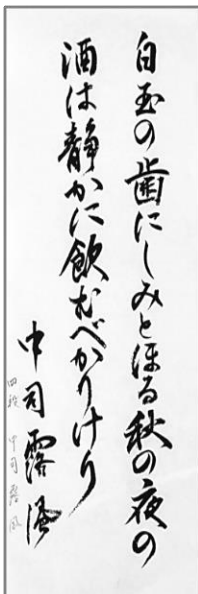 白玉の歯にしみとほる秋の夜の
酒は静かに飲むべかりけり
中司露風
四段 中司露風